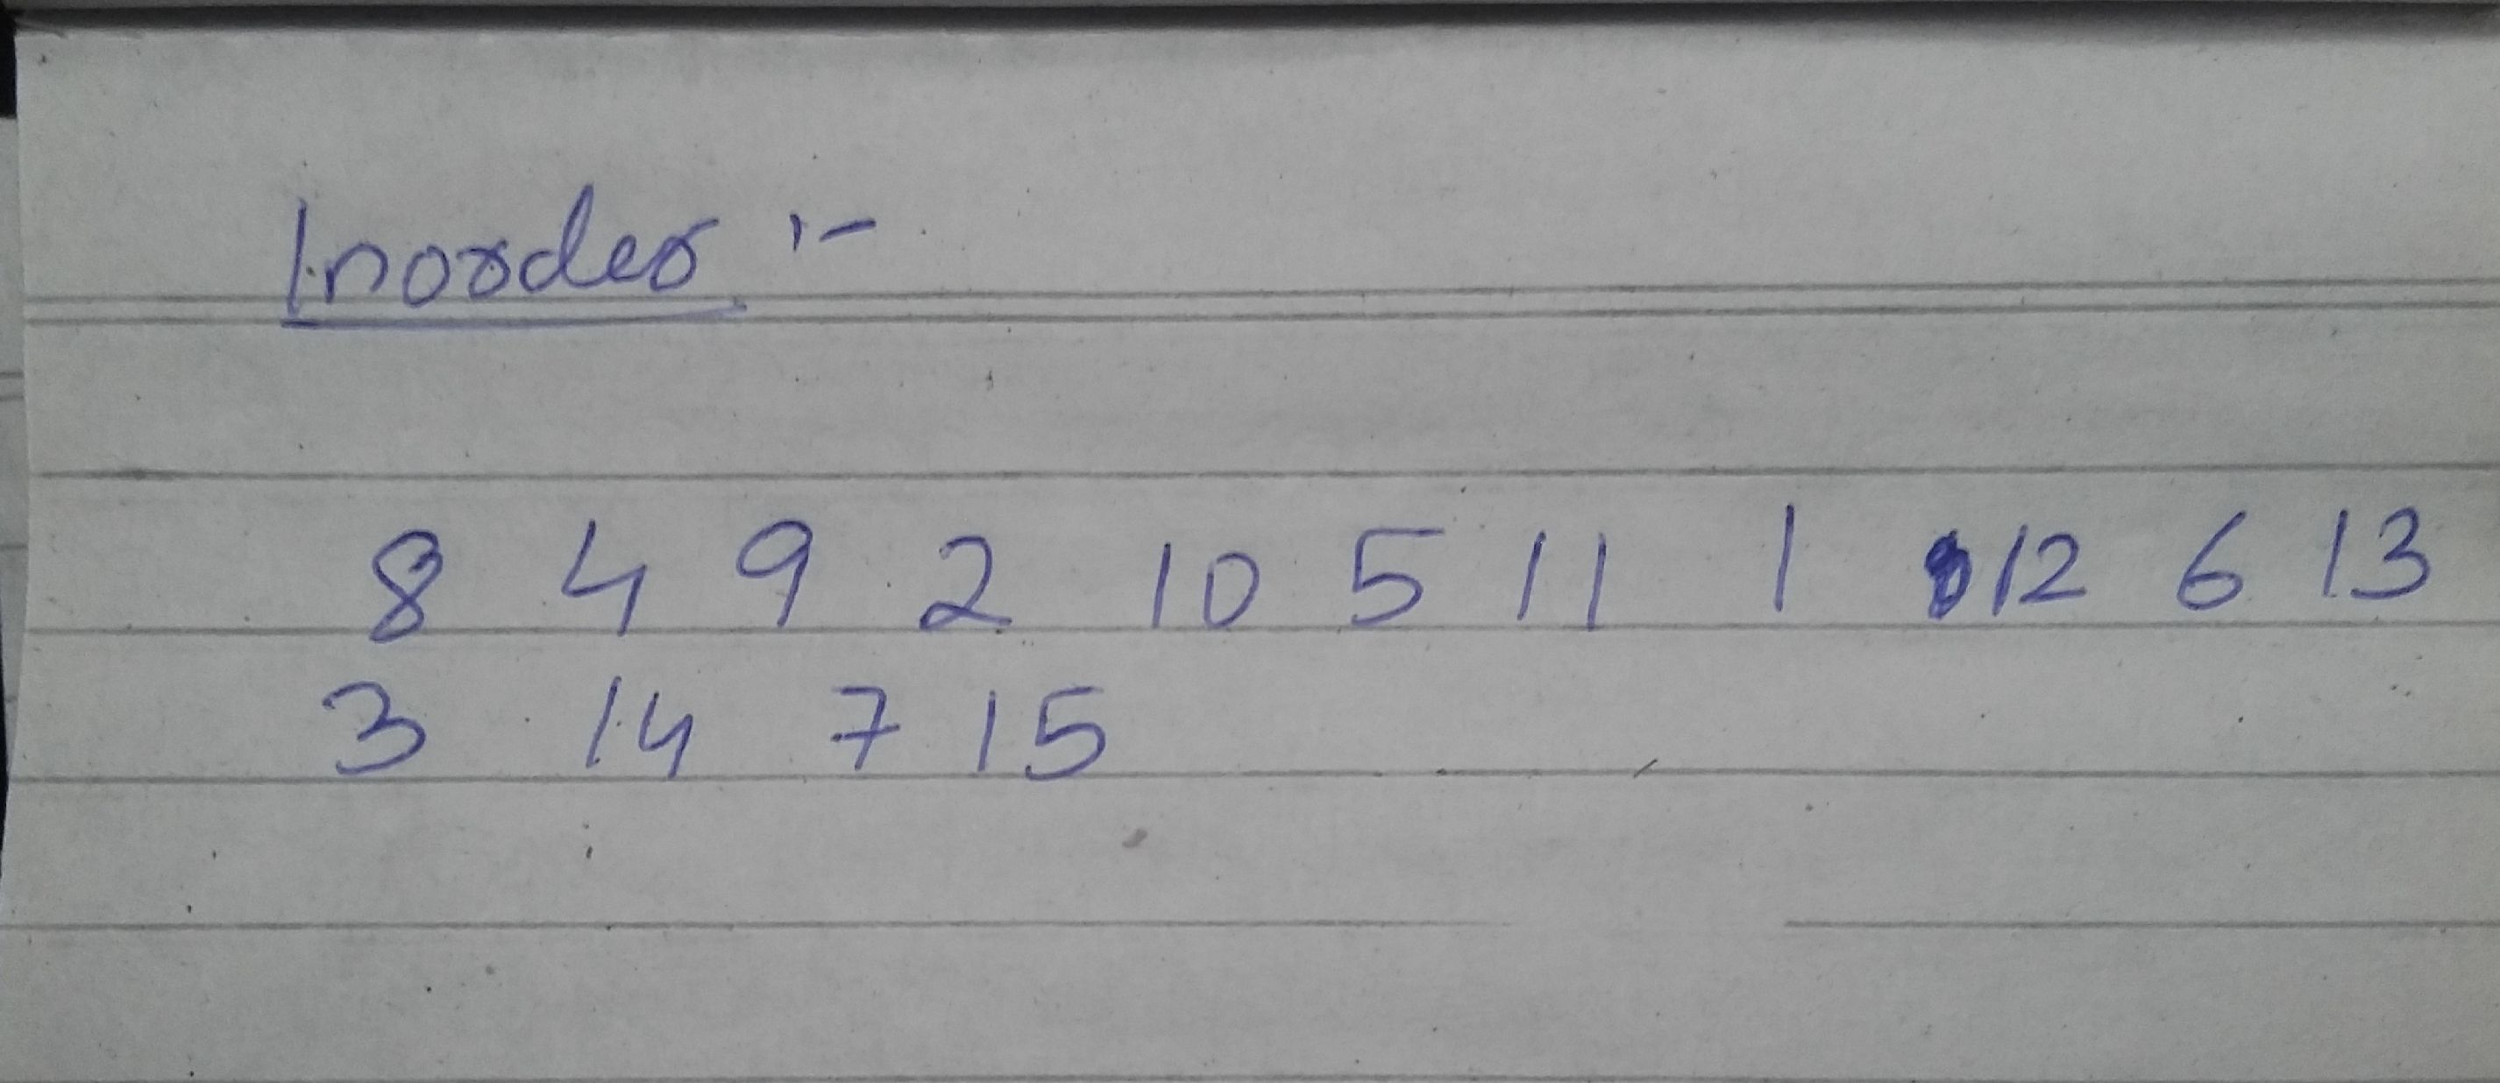 Inorder :-
8 4 9 2 10 5 11 1 12 6 13
3 14 7 15